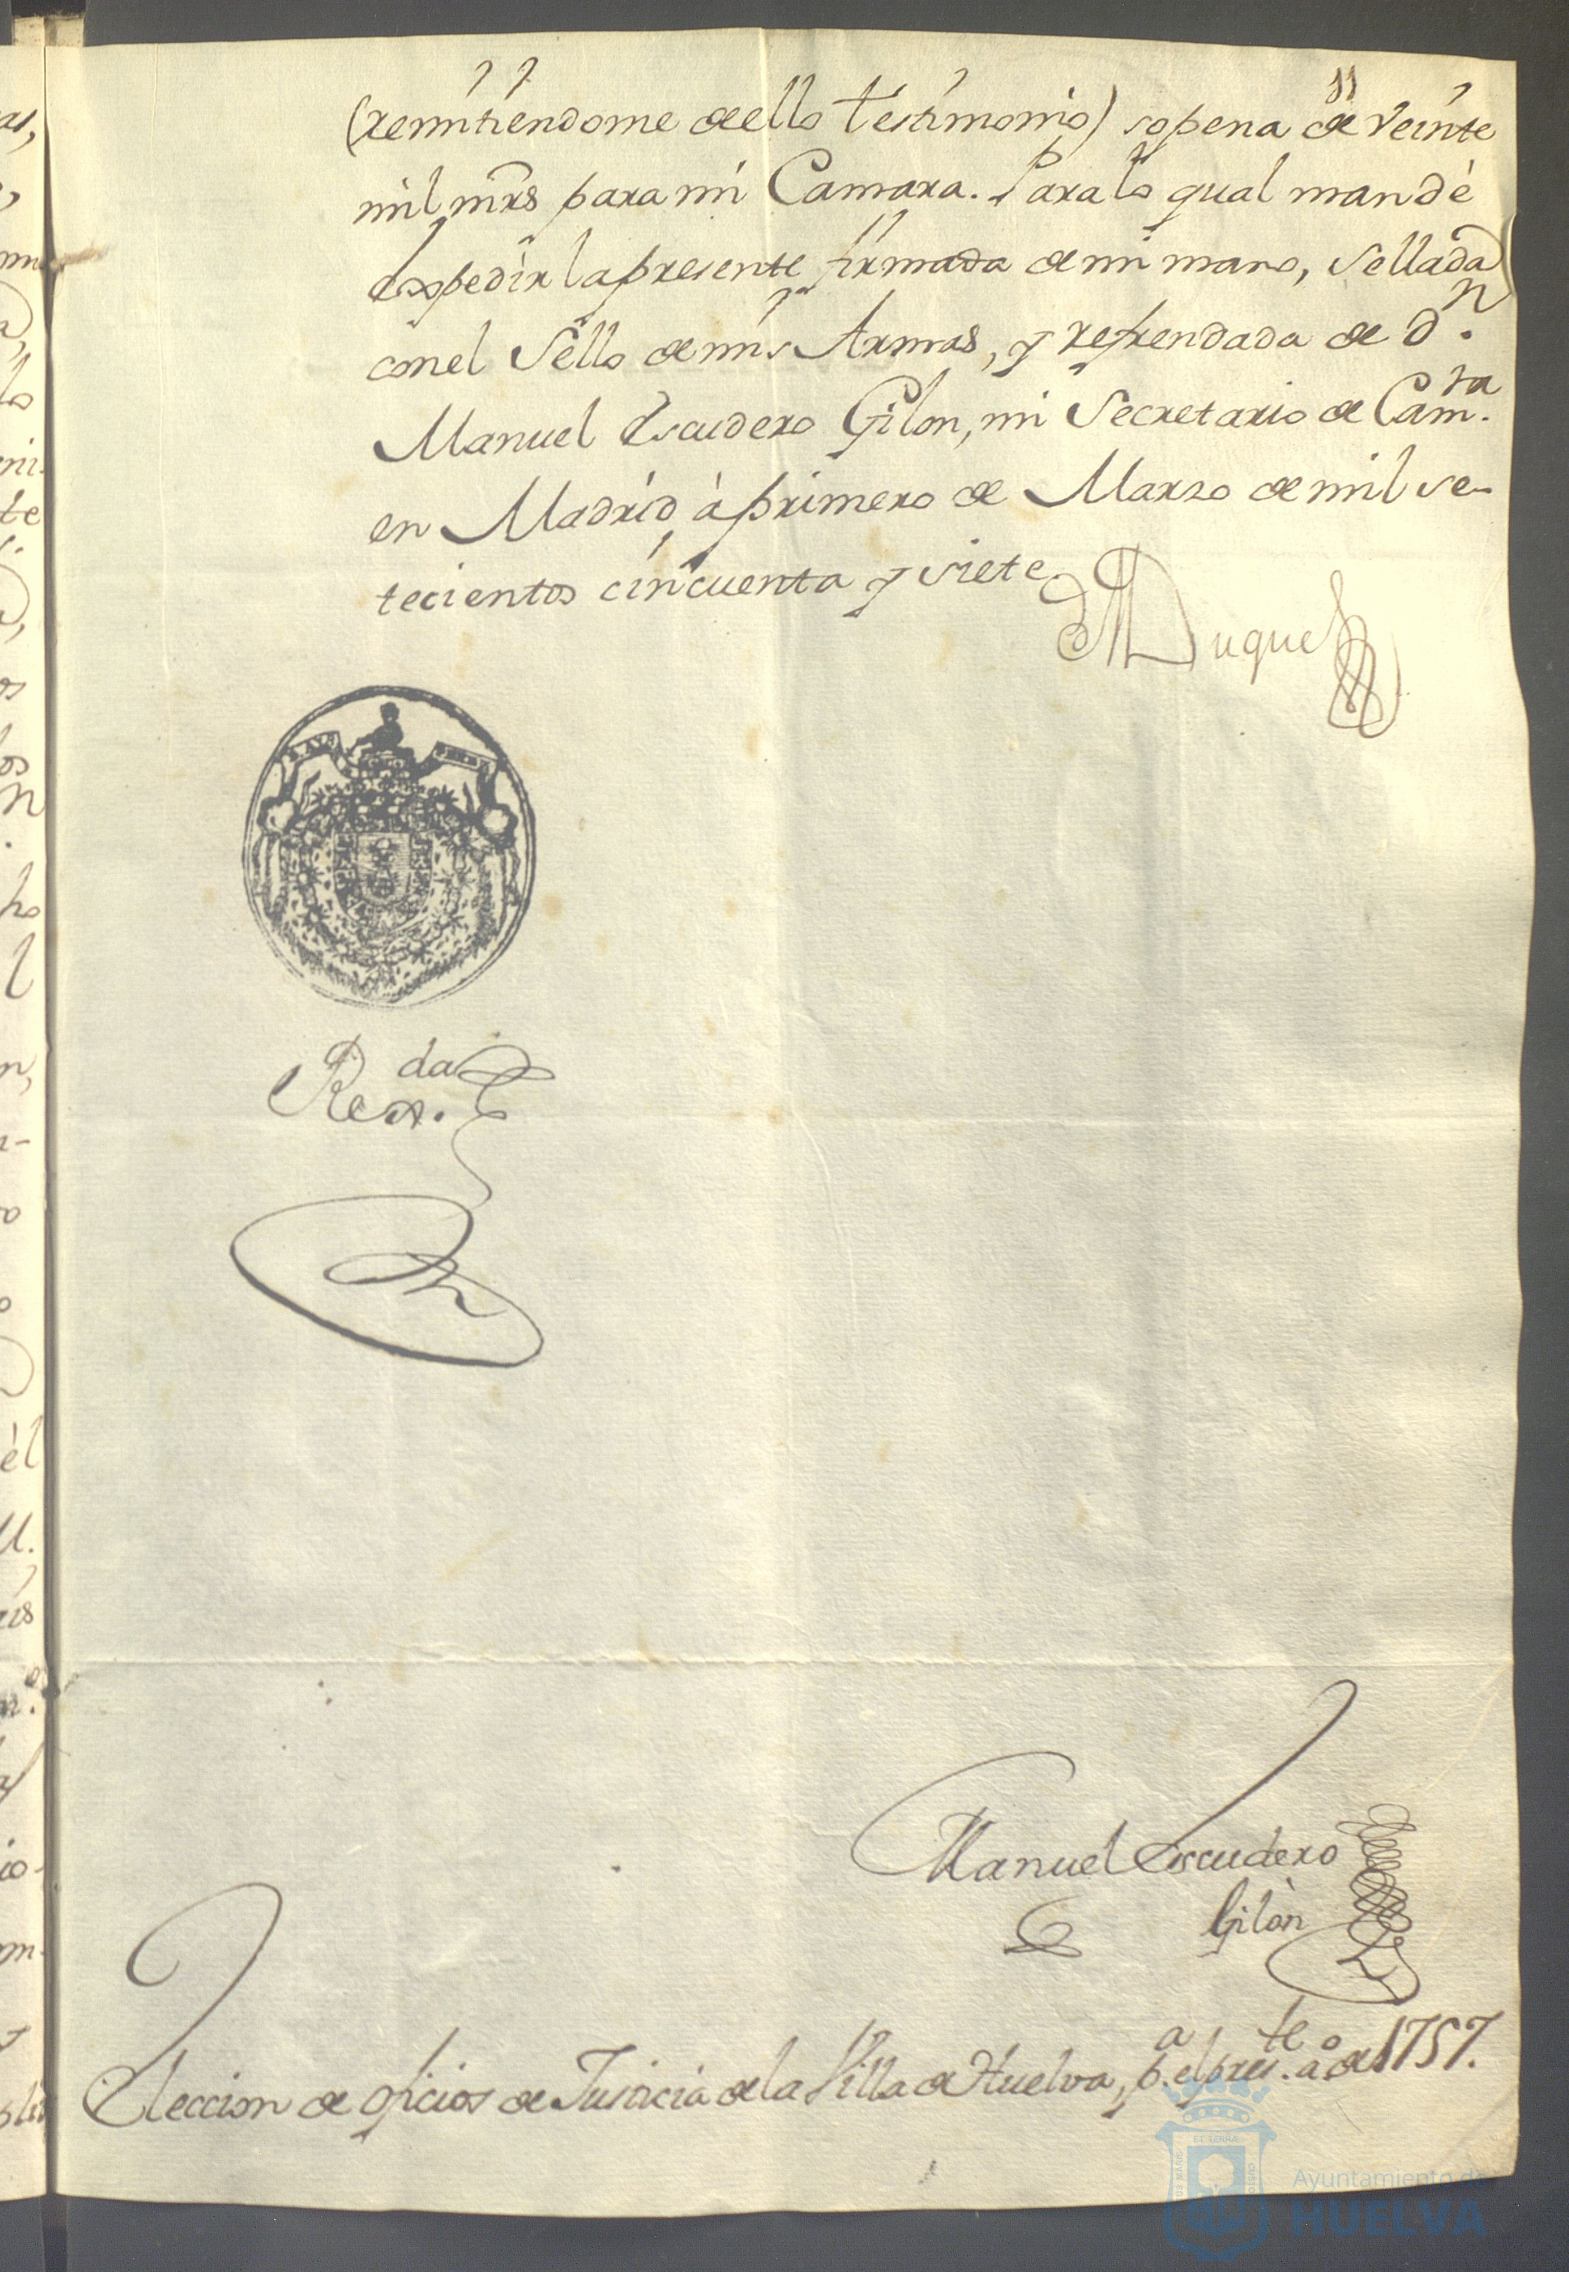 11
(remitiendome de ello testimonio) so pena de veinte
mil mrs para mi Camara. Para lo qual mandè
expedir la presente firmada de mi mano, sellada
con el Sello de mis Armas, y refrendada de Dn.
Manuel Escudero Gilon, mi Secretario de Camra.
en Madrid à primero de Marzo de mil se-
tecientos cincuenta y siete
el Duque
Rexda.
Manuel Escudero
Gilòn
Eleccion de oficios de Justicia de la Villa de Huelva, pa. el preste. ao. de 1757.
Ayuntamiento de
HUELVA